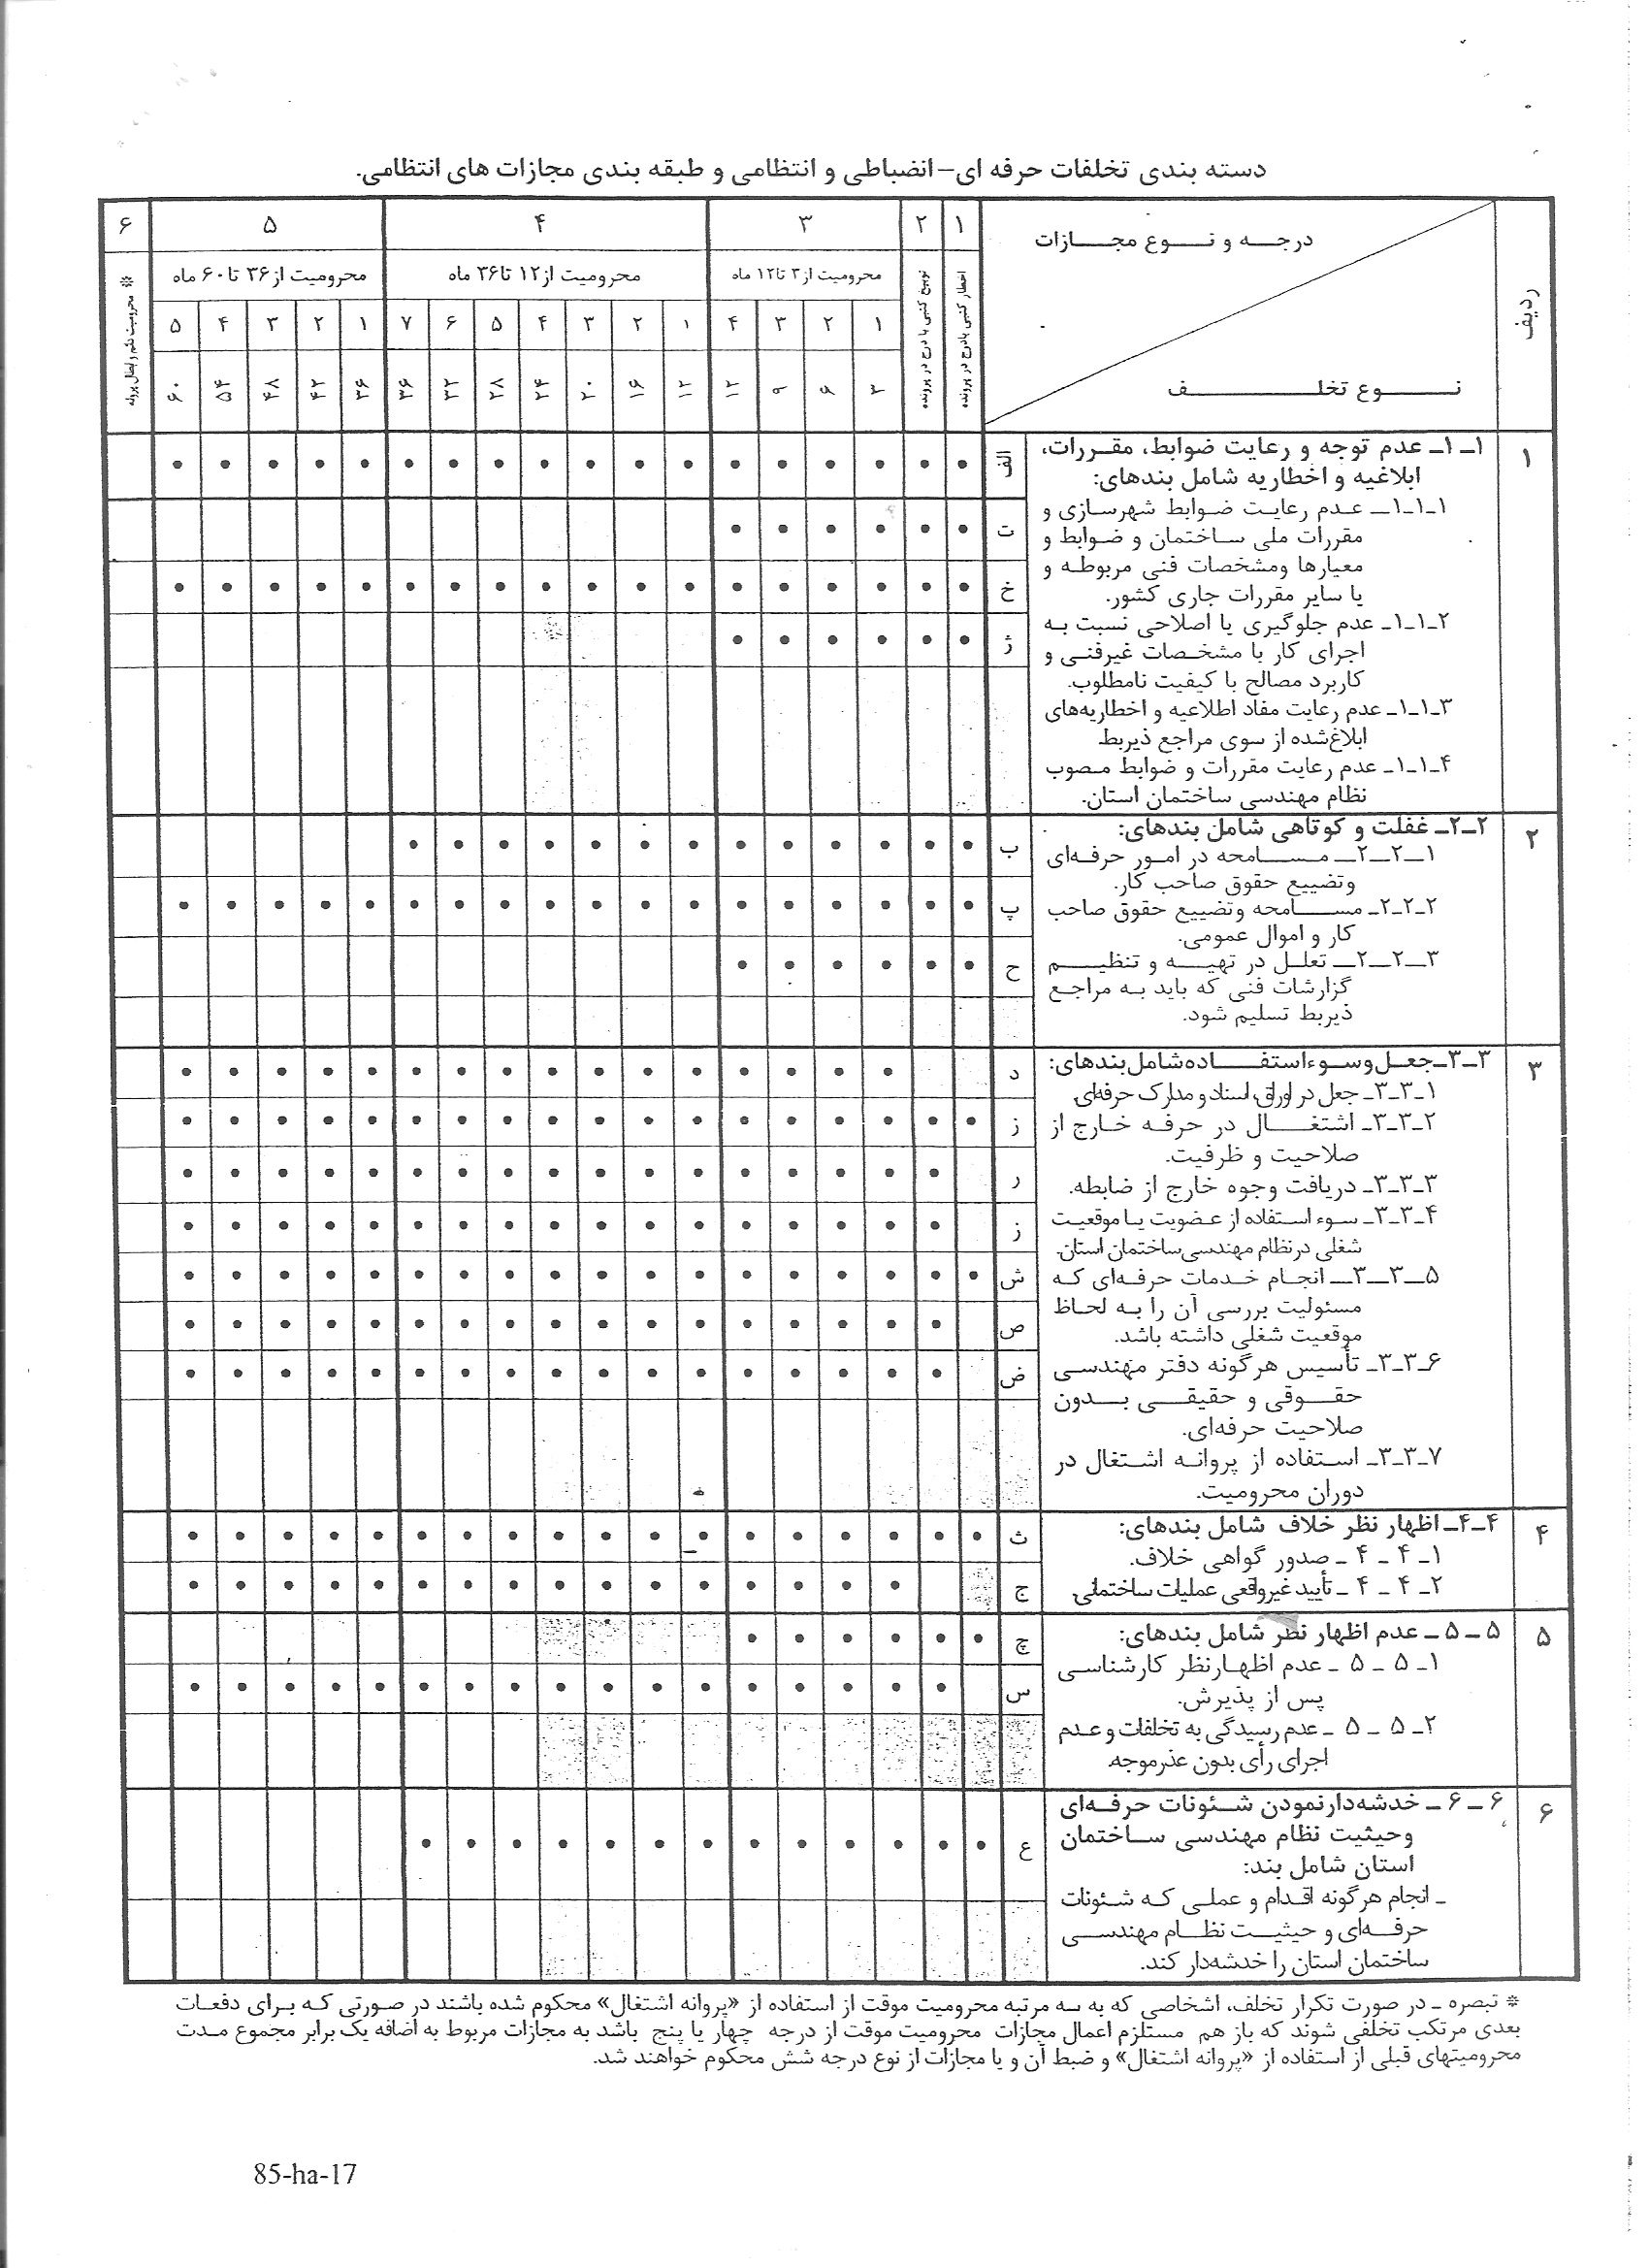 دسته بندی تخلفات حرفه ای-انضباطی و انتظامی و طبقه بندی مجازات های انتظامی.
ردیف
درجـــه و نــــوع مجــــازات
نـــــــوع تخلــــــــــــــــف
۱ ۲ ۳ ۴ ۵ ۶
اخطار کتبی بادرج در پرونده
توبیخ کتبی با درج در پرونده
محرومیت از ۳ تا ۱۲ ماه
محرومیت از ۱۲ تا ۳۶ ماه
محرومیت از ۳۶ تا ۶۰ ماه
۱ ۲ ۳ ۴ ۱ ۲ ۳ ۴ ۵ ۶ ۷ ۱ ۲ ۳ ۴ ۵
۳ ۶ ۹ ۱۲ ۱۲ ۱۶ ۲۰ ۲۴ ۲۸ ۳۲ ۳۶ ۳۶ ۴۲ ۴۸ ۵۴ ۶۰
۱
۱ـ۱ـ عدم توجه و رعایت ضوابط، مقـررات،
ابلاغیه و اخطاریه شامل بندهای:
۱ـ۱ـ۱ـ عـدم رعایـت ضـوابط شهرسازی و
مقررات ملی سـاختمان و ضـوابط و
معیارها ومشخصات فنی مربوطـه و
یا سایر مقررات جاری کشور.
۲ـ۱ـ۱ـ عدم جلوگیری یا اصلاحی نسبت بـه
اجرای کار با مشخـصات غیرفنـی و
کاربرد مصالح با کیفیت نامطلوب.
۳ـ۱ـ۱ـ عدم رعایت مفاد اطلاعیه و اخطاریه‌های
ابلاغ‌شده از سوی مراجع ذیربط
۴ـ۱ـ۱ـ عدم رعایت مقررات و ضوابط مـصوب
نظام مهندسی ساختمان استان.
الف
ت
خ
ژ
۲
۲ـ۲ـ غفلت و کوتاهی شامل بندهای:
۱ـ۲ـ۲ـ مـسـامحه در امـور حرفـه‌ای
وتضییع حقوق صاحب کار.
۲ـ۲ـ۲ـ مسـامحه وتضییع حقوق صاحب
کار و اموال عمومی.
۳ـ۲ـ۲ـ تعلـل در تهیـــه و تنظیـــم
گزارشات فنی که باید بـه مراجـع
ذیربط تسلیم شود.
ب
پ
ح
۳
۳ـ۳ـ جعـل و سـوء استفـــاده شامل بندهای:
۱ـ۳ـ۳ـ جعل در اوراق، اسناد و مدارک حرفه‌ای
۲ـ۳ـ۳ـ اشتغــال در حرفـه خـارج از
صلاحیت و ظرفیت.
۳ـ۳ـ۳ـ دریافت وجوه خارج از ضابطه.
۴ـ۳ـ۳ـ سوء استفاده از عضویت یا موقعیت
شغلی در نظام مهندسی ساختمان استان.
۵ـ۳ـ۳ـ انجـام خـدمات حرفـه‌ای کـه
مسئولیت بررسی آن را بـه لحـاظ
موقعیت شغلی داشته باشد.
۶ـ۳ـ۳ـ تأسیس هرگونه دفتر مهندسـی
حقــوقی و حقیقــی بــدون
صلاحیت حرفه‌ای.
۷ـ۳ـ۳ـ اسـتفاده از پروانـه اشـتغال در
دوران محرومیت.
د
ز
ر
ز
ش
ص
ض
۴
۴ـ۴ـ اظهار نظر خلاف شامل بندهای:
۱ـ ۴ ـ ۴ ـ صدور گواهی خلاف.
۲ـ ۴ ـ ۴ ـ تأیید غیرواقعی عملیات ساختمانی
ث
ج
۵
۵ ـ ۵ ـ عدم اظهار نظر شامل بندهای:
۱ـ ۵ ـ ۵ ـ عدم اظهـارنظر کارشناسـی
پس از پذیرش.
۲ـ ۵ ـ ۵ ـ عدم رسیدگی به تخلفات و عـدم
اجرای رأی بدون عذرموجه.
چ
س
۶
۶ ـ ۶ ـ خدشه‌دارنمودن شـئونات حرفـه‌ای
وحیثیت نظام مهندسی سـاختمان
استان شامل بند:
ـ انجام هرگونه اقـدام و عملـی کـه شـئونات
حرفـه‌ای و حیثیـت نظـام مهندسـی
ساختمان استان را خدشه‌دار کند.
ع
* تبصره ـ در صورت تکرار تخلف، اشخاصی که به سه مرتبه محرومیت موقت از استفاده از «پروانه اشتغال» محکوم شده باشند در صورتی که برای دفعات
بعدی مرتکب تخلفی شوند که باز هم مستلزم اعمال مجازات محرومیت موقت از درجه چهار یا پنج باشد به مجازات مربوط به اضافه یک برابر مجموع مـدت
محرومیتهای قبلی از استفاده از «پروانه اشتغال» و ضبط آن و یا مجازات از نوع درجه شش محکوم خواهند شد.
85-ha-17